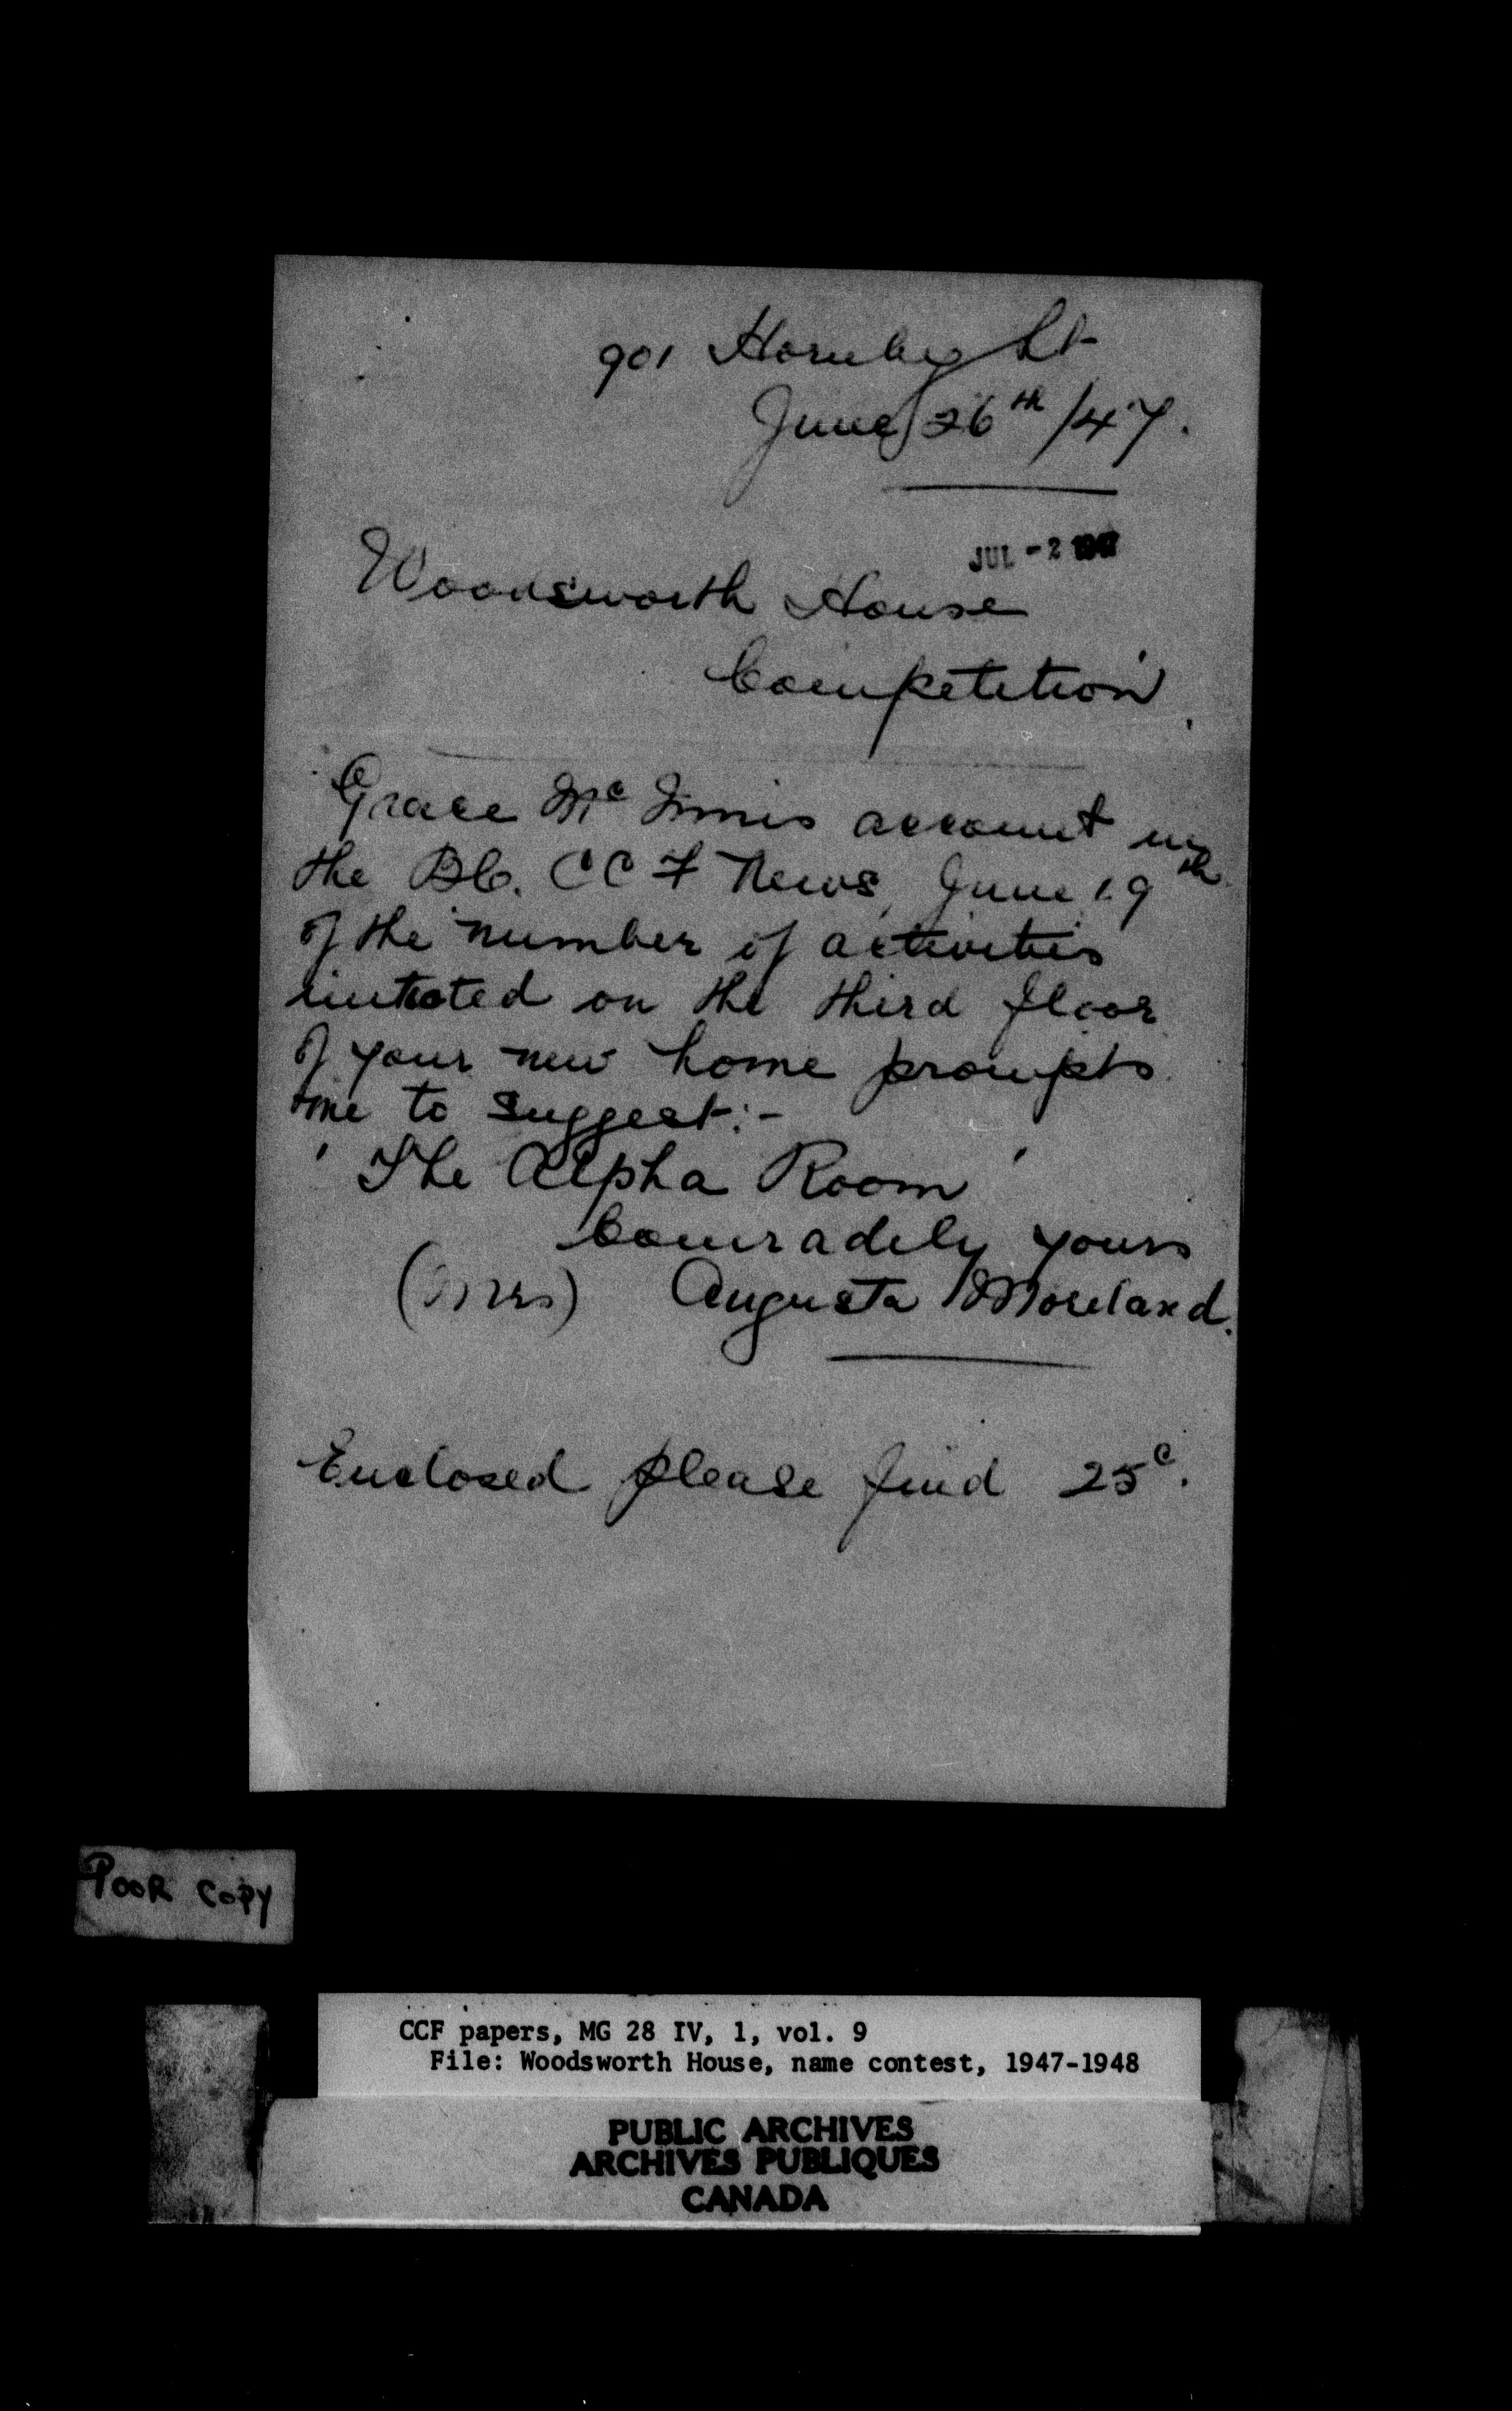 901 Hornby St
June 26th/47.
JUL - 2 1947
Woodsworth House
Competition.
Grace Mc Innis account in
the B.C. CCF News, June 19th
of the number of activities
initiated on the third floor
of your new home prompts
me to suggest:-
'The Alpha Room'
Comradely yours
(Mrs) Augusta Moreland.
Enclosed please find 25c.
POOR COPY
CCF papers, MG 28 IV, 1, vol. 9
File: Woodsworth House, name contest, 1947-1948
PUBLIC ARCHIVES
ARCHIVES PUBLIQUES
CANADA